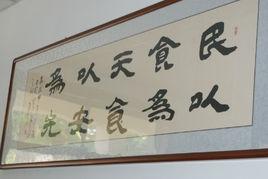 民以
食為
天食
以安
為先